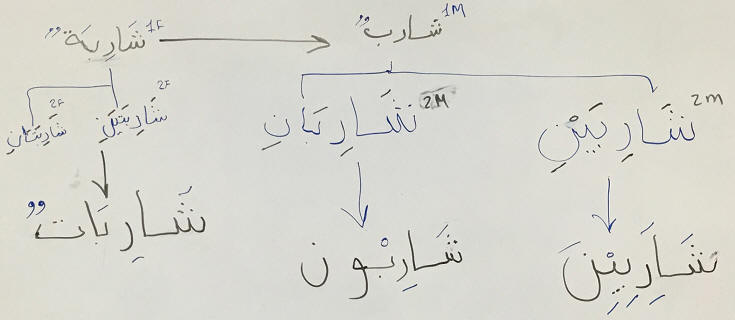 شَارِبَة ٌٌ 1F شارب ٌٌ 1M
شَارِبَتَانِ 2F شَارِبَتَيْنِ 2F شَارِبَانِ 2M شَارِبَيْنِ 2m
شَارِبَات ٌٌ شَارِبُون شَارِبِيْنَ